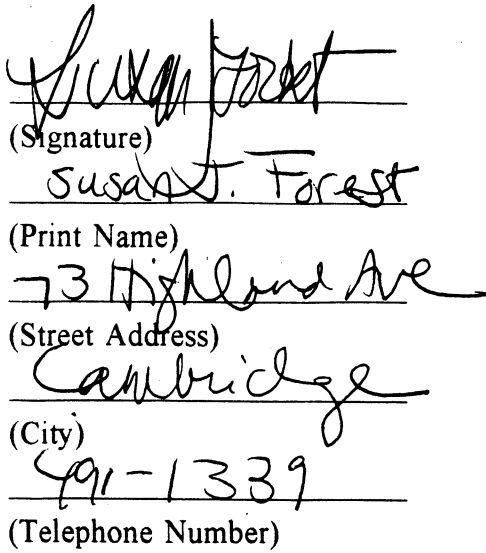 Susan Forest
(Signature)
Susan J. Forest
(Print Name)
73 Highland Ave
(Street Address)
Cambridge
(City)
491-1339
(Telephone Number)